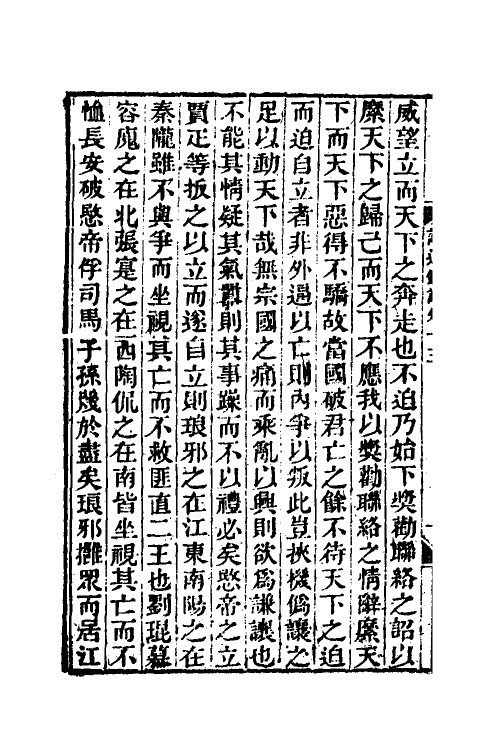 威望立而天下之奔走也不迫乃始下獎勸聯絡之詔以
縻天下之歸己而天下不應我以獎勸聯絡之情辭縻天
下而天下惡得不驕故當國破君亡之餘不待天下之迫
而迫自立者非外逼以亡則內爭以叛此豈挾機僞讓之
足以動天下哉無宗國之痛而乘亂以興則欲爲謙讓也
不能其情疑其氣囂則其事躁而不以禮必矣愍帝之立
賈疋等扳之以立而遂自立則琅邪之在江東南陽之在
秦隴雖不與爭而坐視其亡而不救匪直二王也劉琨慕
容廆之在北張寔之在西陶侃之在南皆坐視其亡而不
恤長安破愍帝俘司馬子孫幾於盡矣琅邪擁眾而居江